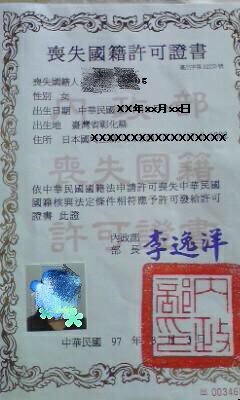 喪失國籍許可證書
喪失國籍人
性別 女
出生日期 中華民國XX年xx月xx日
出生地 臺灣省彰化縣
住所 日本國XXXXXXXXXXXXXXXXX
喪失國籍
許可證書
依中華民國國籍法申請許可喪失中華民國
國籍核與法定條件相符應予許可發給許可
證書 此證
內政部
部長 李逸洋
內政部印
中華民國 97 年 月 日
00346